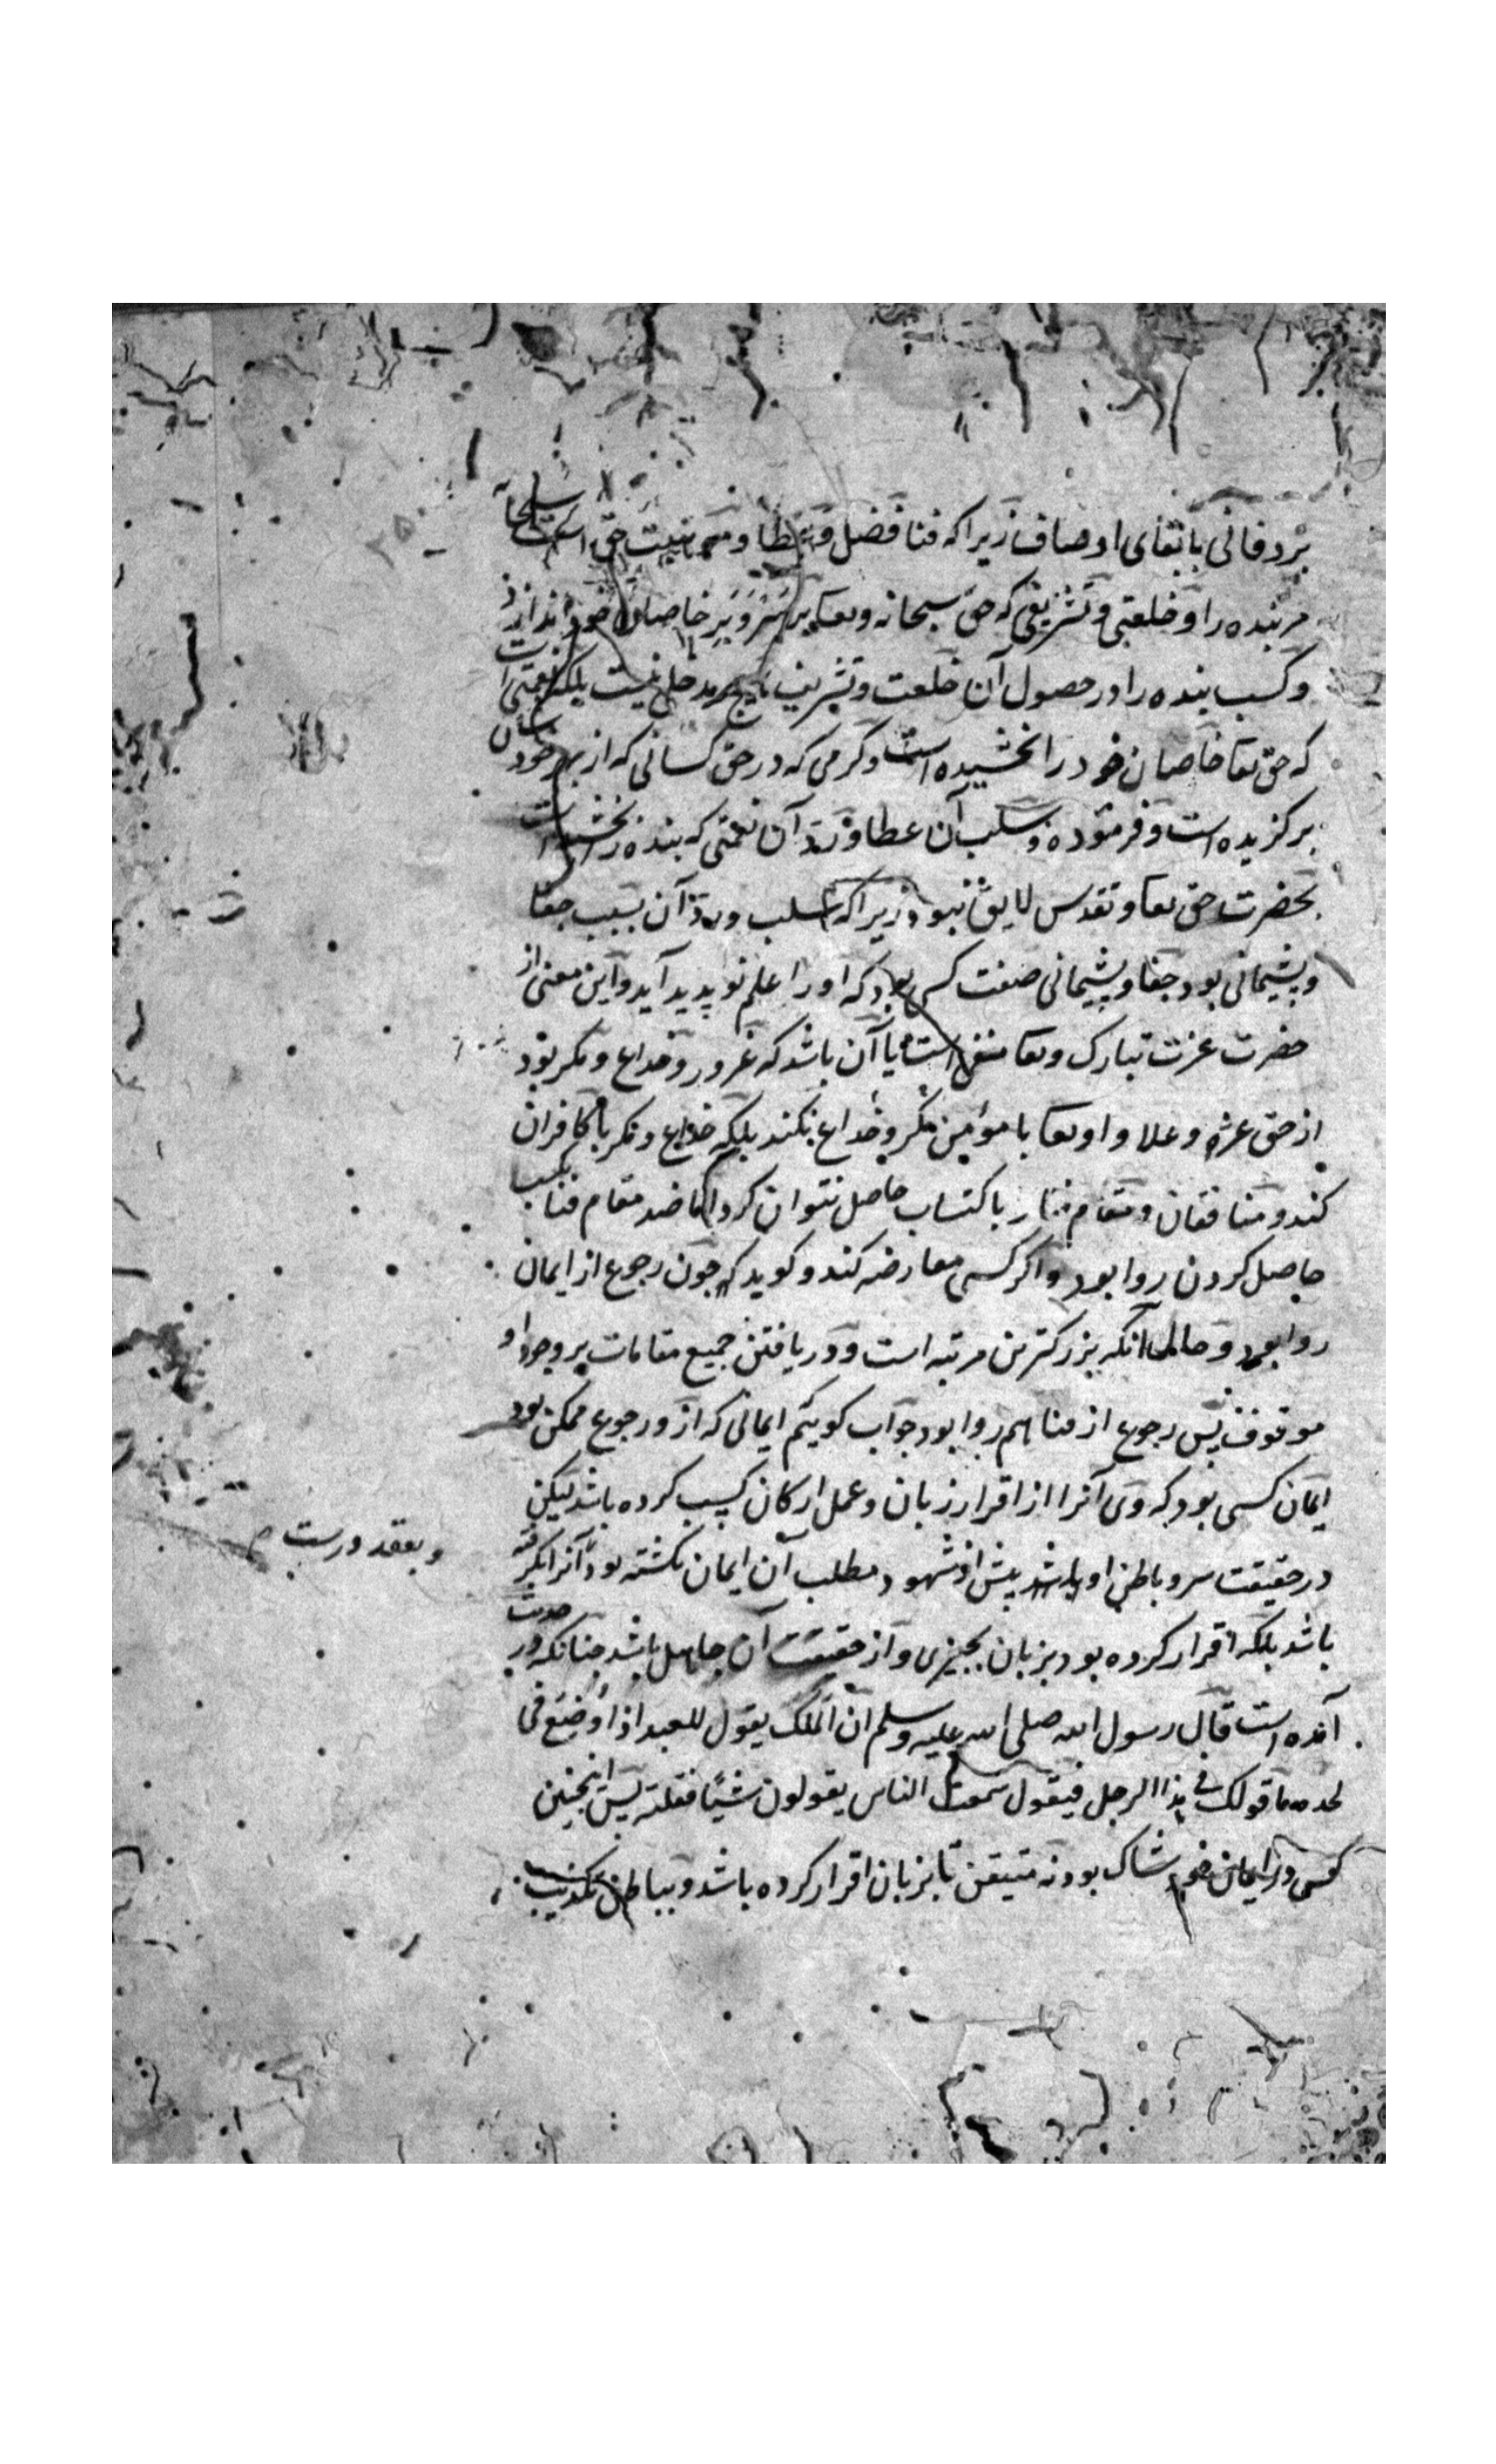 برد فانی با بقای اوصاف زیرا که فنا فضل و عطا و موهبت حق است سبحانه
مر بنده را و خلعتی و تشریفی که حق سبحانه و تعا بر سر و بر خاصان خود اندازد
و کسب بنده را در حصول آن خلعت و تشریف هیچ مدخل نیست بلکه نعمتی است
که حق تعا خاصان خود را بخشیده است و کرمی که در حق کسانی که از بهر خودشان
برکزیده است و فرموده و سلب آن عطا و رد آن نعمتی که بنده را بخشیده است
بحضرت حق تعا و تقدس لایق نبود زیرا که سلب و رد آن بسبب جفا
و پشیمانی بود و جفا و پشیمانی صفت کسی بود که او را علم نو پدید آید و این معنی از
حضرت عزت تبارک و تعا منفی است یا آن باشد که غرور و خداع و مکر بود
از حق عزه و علا و او تعا با مؤمن مکر و خداع نکند بلکه خداع و مکر با کافران
کند و منافقان و مقام فنا را باکتساب حاصل نتوان کرد اما ضد مقام فنا بکسب
حاصل کردن روا بود واکر کسی معارضه کند و کوید که چون رجوع از ایمان
روا بود و حال آنکه بزرکترین مرتبه است و دریافتن جمیع مقامات بر وجود او
موقوف پس رجوع از فنا هم روا بود جواب کوییم ایمانی که ازو رجوع ممکن بود
ایمان کسی بود که وی آنرا از اقرار زبان و عمل ارکان کسب کرده باشد لیکن
در حقیقت سر و باطن او پیش از شهود مطلب آن ایمان نکشته بود و آنرا نکرفته
و بعقد درست
باشد بلکه اقرار کرده بود بزبان بچیزی و از حقیقت آن جاهل باشد چنانکه در حدیث
آمده است قال رسول الله صلی الله علیه وسلم ان الملک یقول للعبد اذا وضع فی
لحده ما قولک فی هذا الرجل فیقول سمعت الناس یقولون شیئا فقلته پس اینچنین
کسی در ایمان خود شاک بود نه متیقن تا بزبان اقرار کرده باشد و بباطن تکذیب